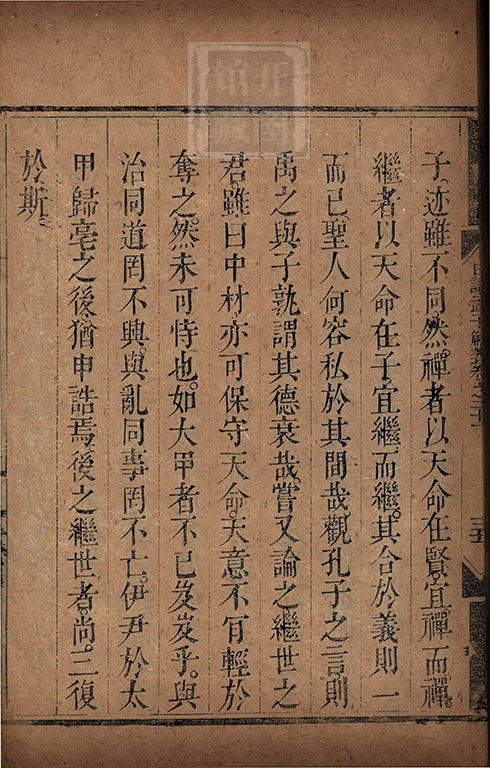 子迹雖不同。然禪者以天命在賢。宜禪而禪。
繼者以天命在子。宜繼而繼。其合於義則一
而已。聖人何容私於其間哉。觀孔子之言則
禹之與子。孰謂其德衰哉。嘗又論之。繼世之
君。雖曰中材。亦可保守天命。天意不肎輕於
奪之。然未可恃也。如大甲者不已岌岌乎。與
治同道罔不興。與亂同事罔不亡。伊尹於太
甲歸亳之後。猶申誥焉。後之繼世者。尚三復
於斯。